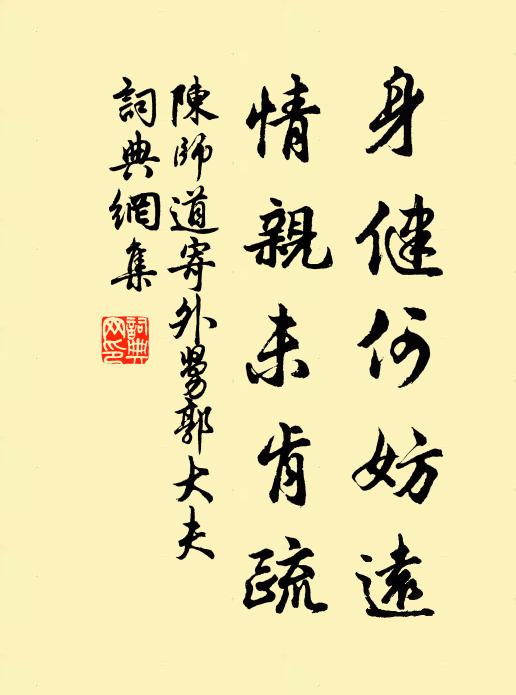 身健何妨遠
情親未肯疏
陳師道寄外舅郭大夫
詞典網集
詞典
网印